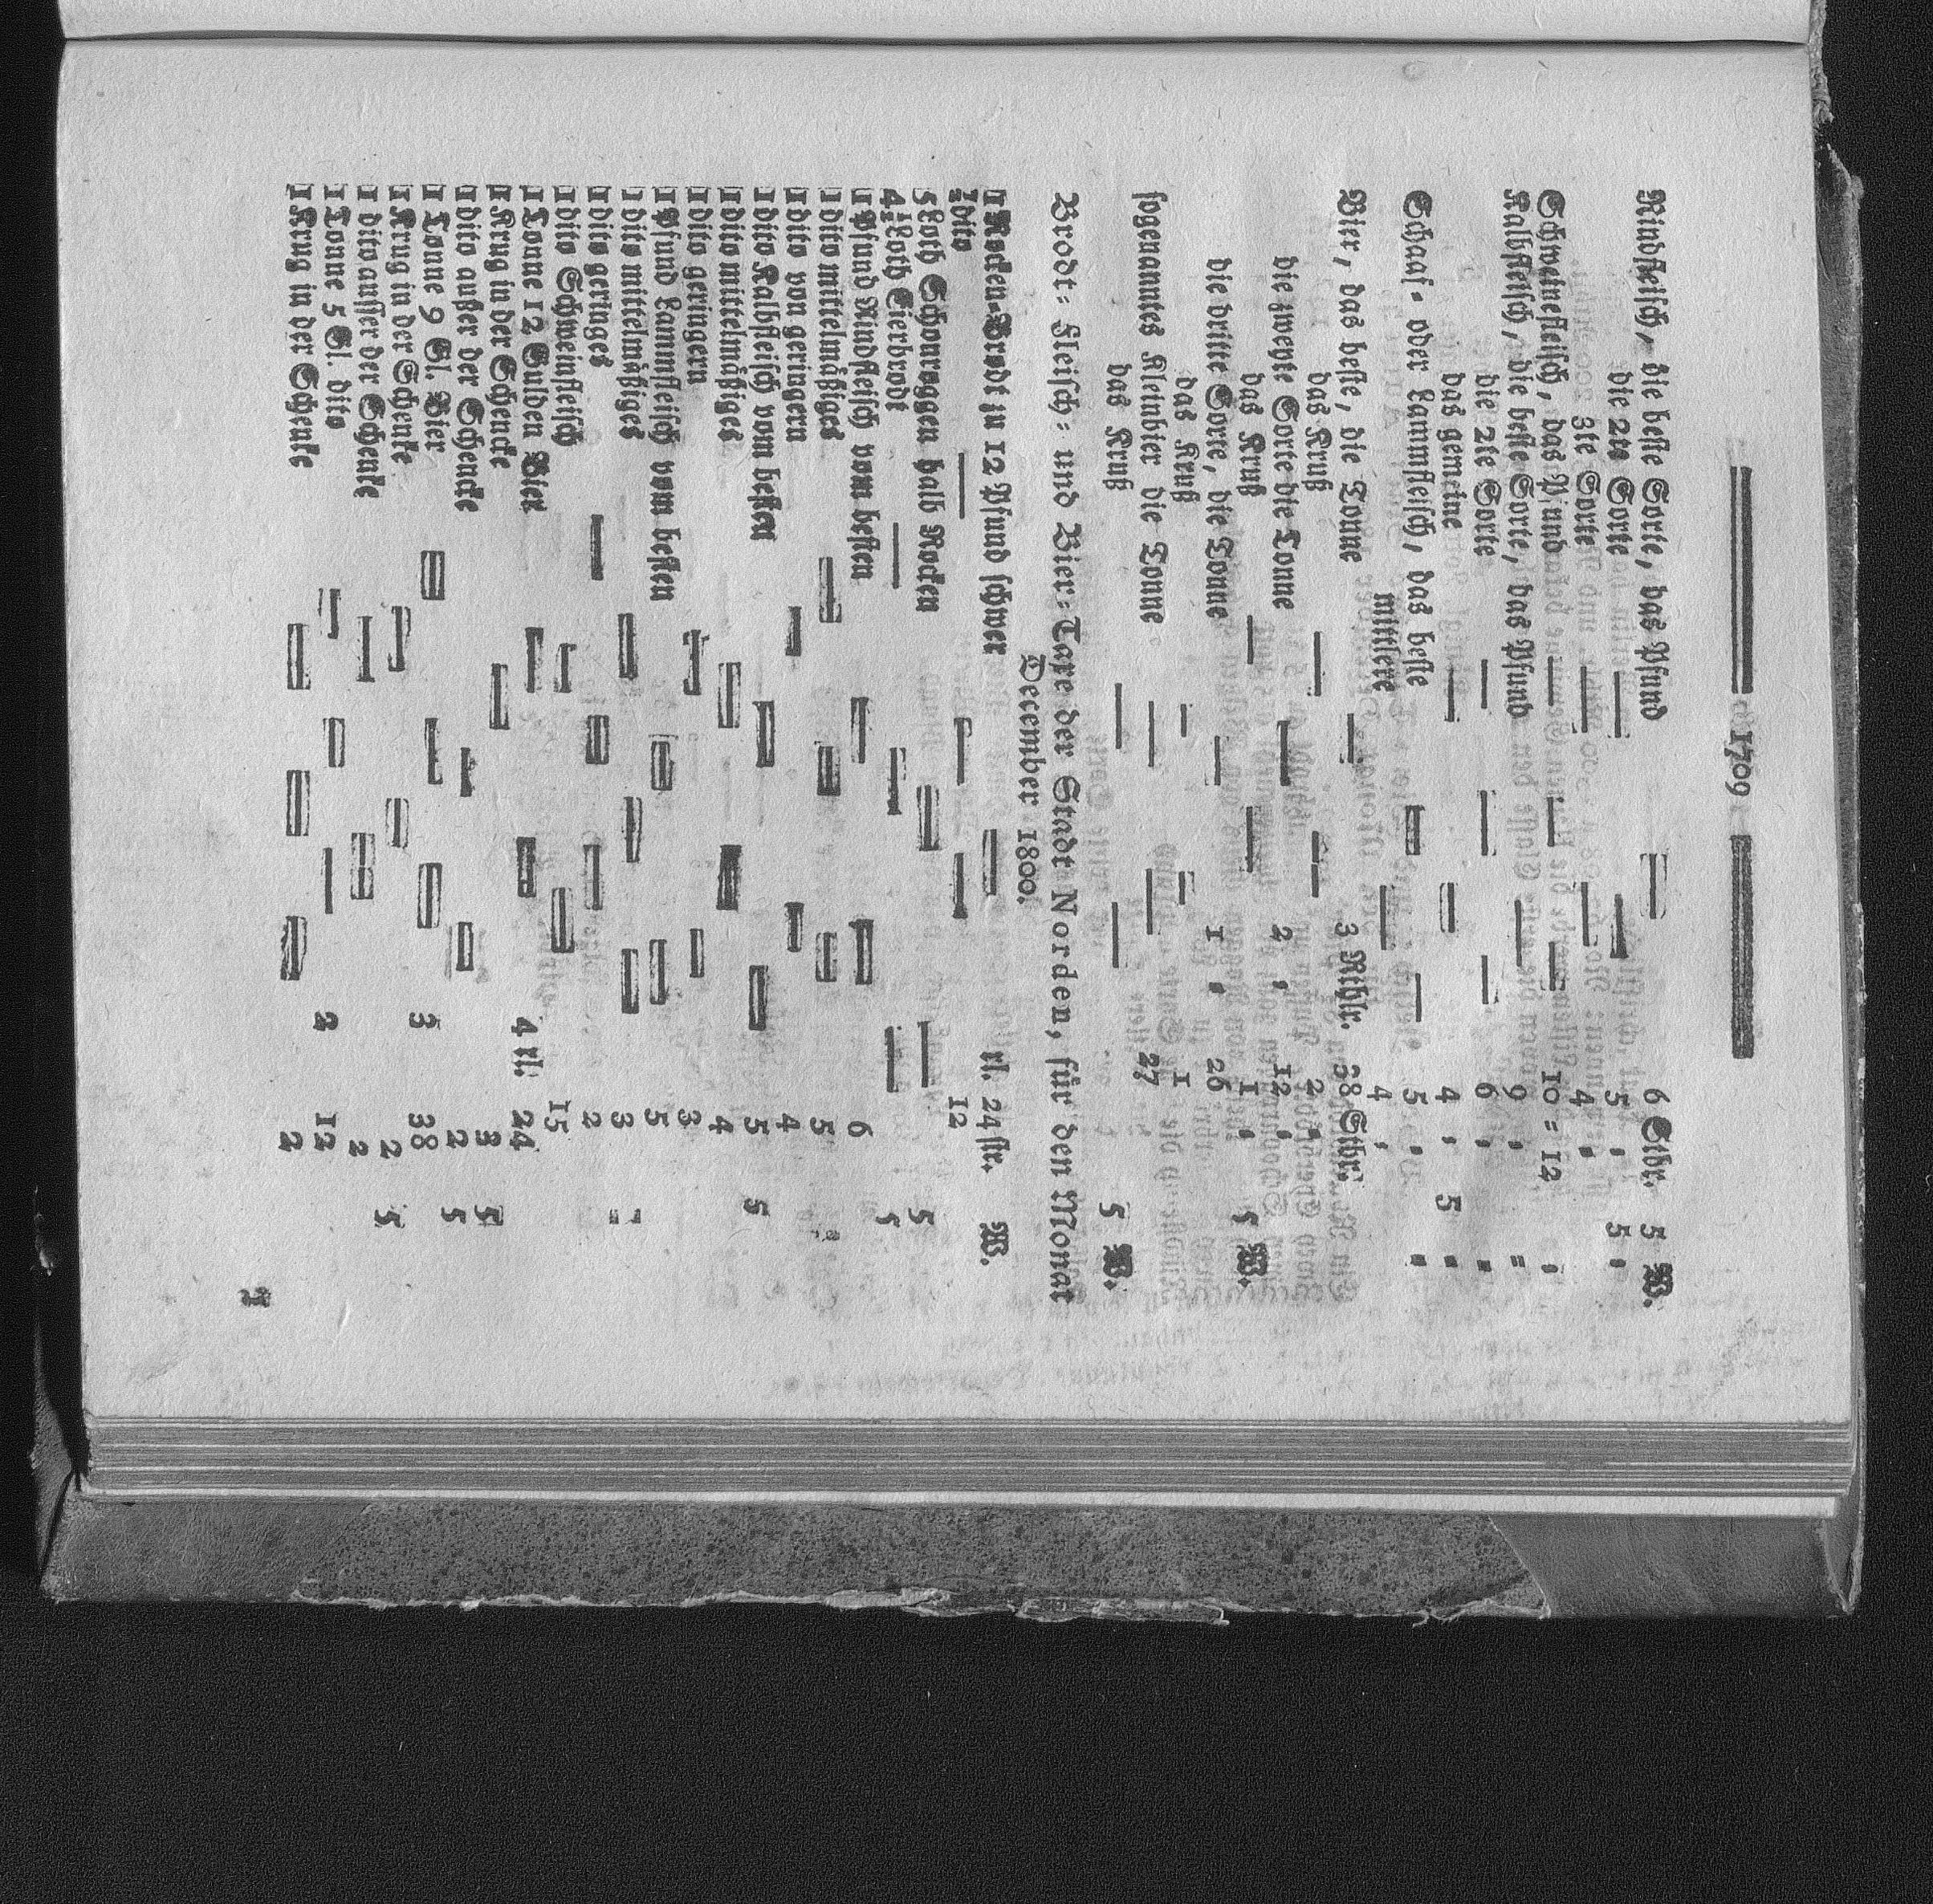 1709
Rindfleisch, die beste Sorte, das Pfund — 6 Stbr. 5 W.
die 2te Sorte — — 5 , 5 ,
3te Sorte — — 4 ,
Schweinefleisch, das Pfund — — — 10 = 12 ,
Kalbfleisch, die beste Sorte, das Pfund — 9 , =
die 2te Sorte — — — 6 , =
das gemeine — — 4 , 5 =
Schaaf- oder Lammfleisch, das beste — — 5 , =
mittlere — 4 ,
Bier, das beste, die Tonne — 3 Rthlr. 38 Stbr.
das Krug — — 2 ,
die zweyte Sorte die Tonne — 2 , 12 ,
das Krug — — 1 , 5 W.
die dritte Sorte, die Tonne — 1 , 26
das Krug — — 1
sogenanntes Kleinbier die Tonne — — 27
das Krug — — 5 W.
Brodt- Fleisch- und Bier-Taxe der Stadt Norden, für den Monat
December 1800.
1 Rocken-Brodt zu 12 Pfund schwer — rl. 24 str. W.
½ dito — — — 12
5 Loth Schonroggen halb Rocken — — 5
4½ Loth Eierbrodt — — — 5
1 Pfund Rindfleisch vom besten — — 6
1 dito mittelmäßiges — — — 5
1 dito von geringern — — 4
1 dito Kalbfleisch vom besten — — 5 5
1 dito mittelmäßiges — — 4
1 dito geringern — — 3
1 Pfund Lammfleisch vom besten — — 5
1 dito mittelmäßiges — — — 3
1 dito geringes — — — 2
1 dito Schweinfleisch — — 15
1 Tonne 12 Gulden Bier — — 4 rl. 24
1 Krug in der Schencke — 3 5
1 dito außer der Schencke — — 2 5
1 Tonne 9 Gl. Bier — — — 3 38
1 Krug in der Schenke — — 2 5
1 dito ausser der Schenke — — 2
1 Tonne 5 Gl. dito — — — 2 12
1 Krug in der Schenke — — — 2